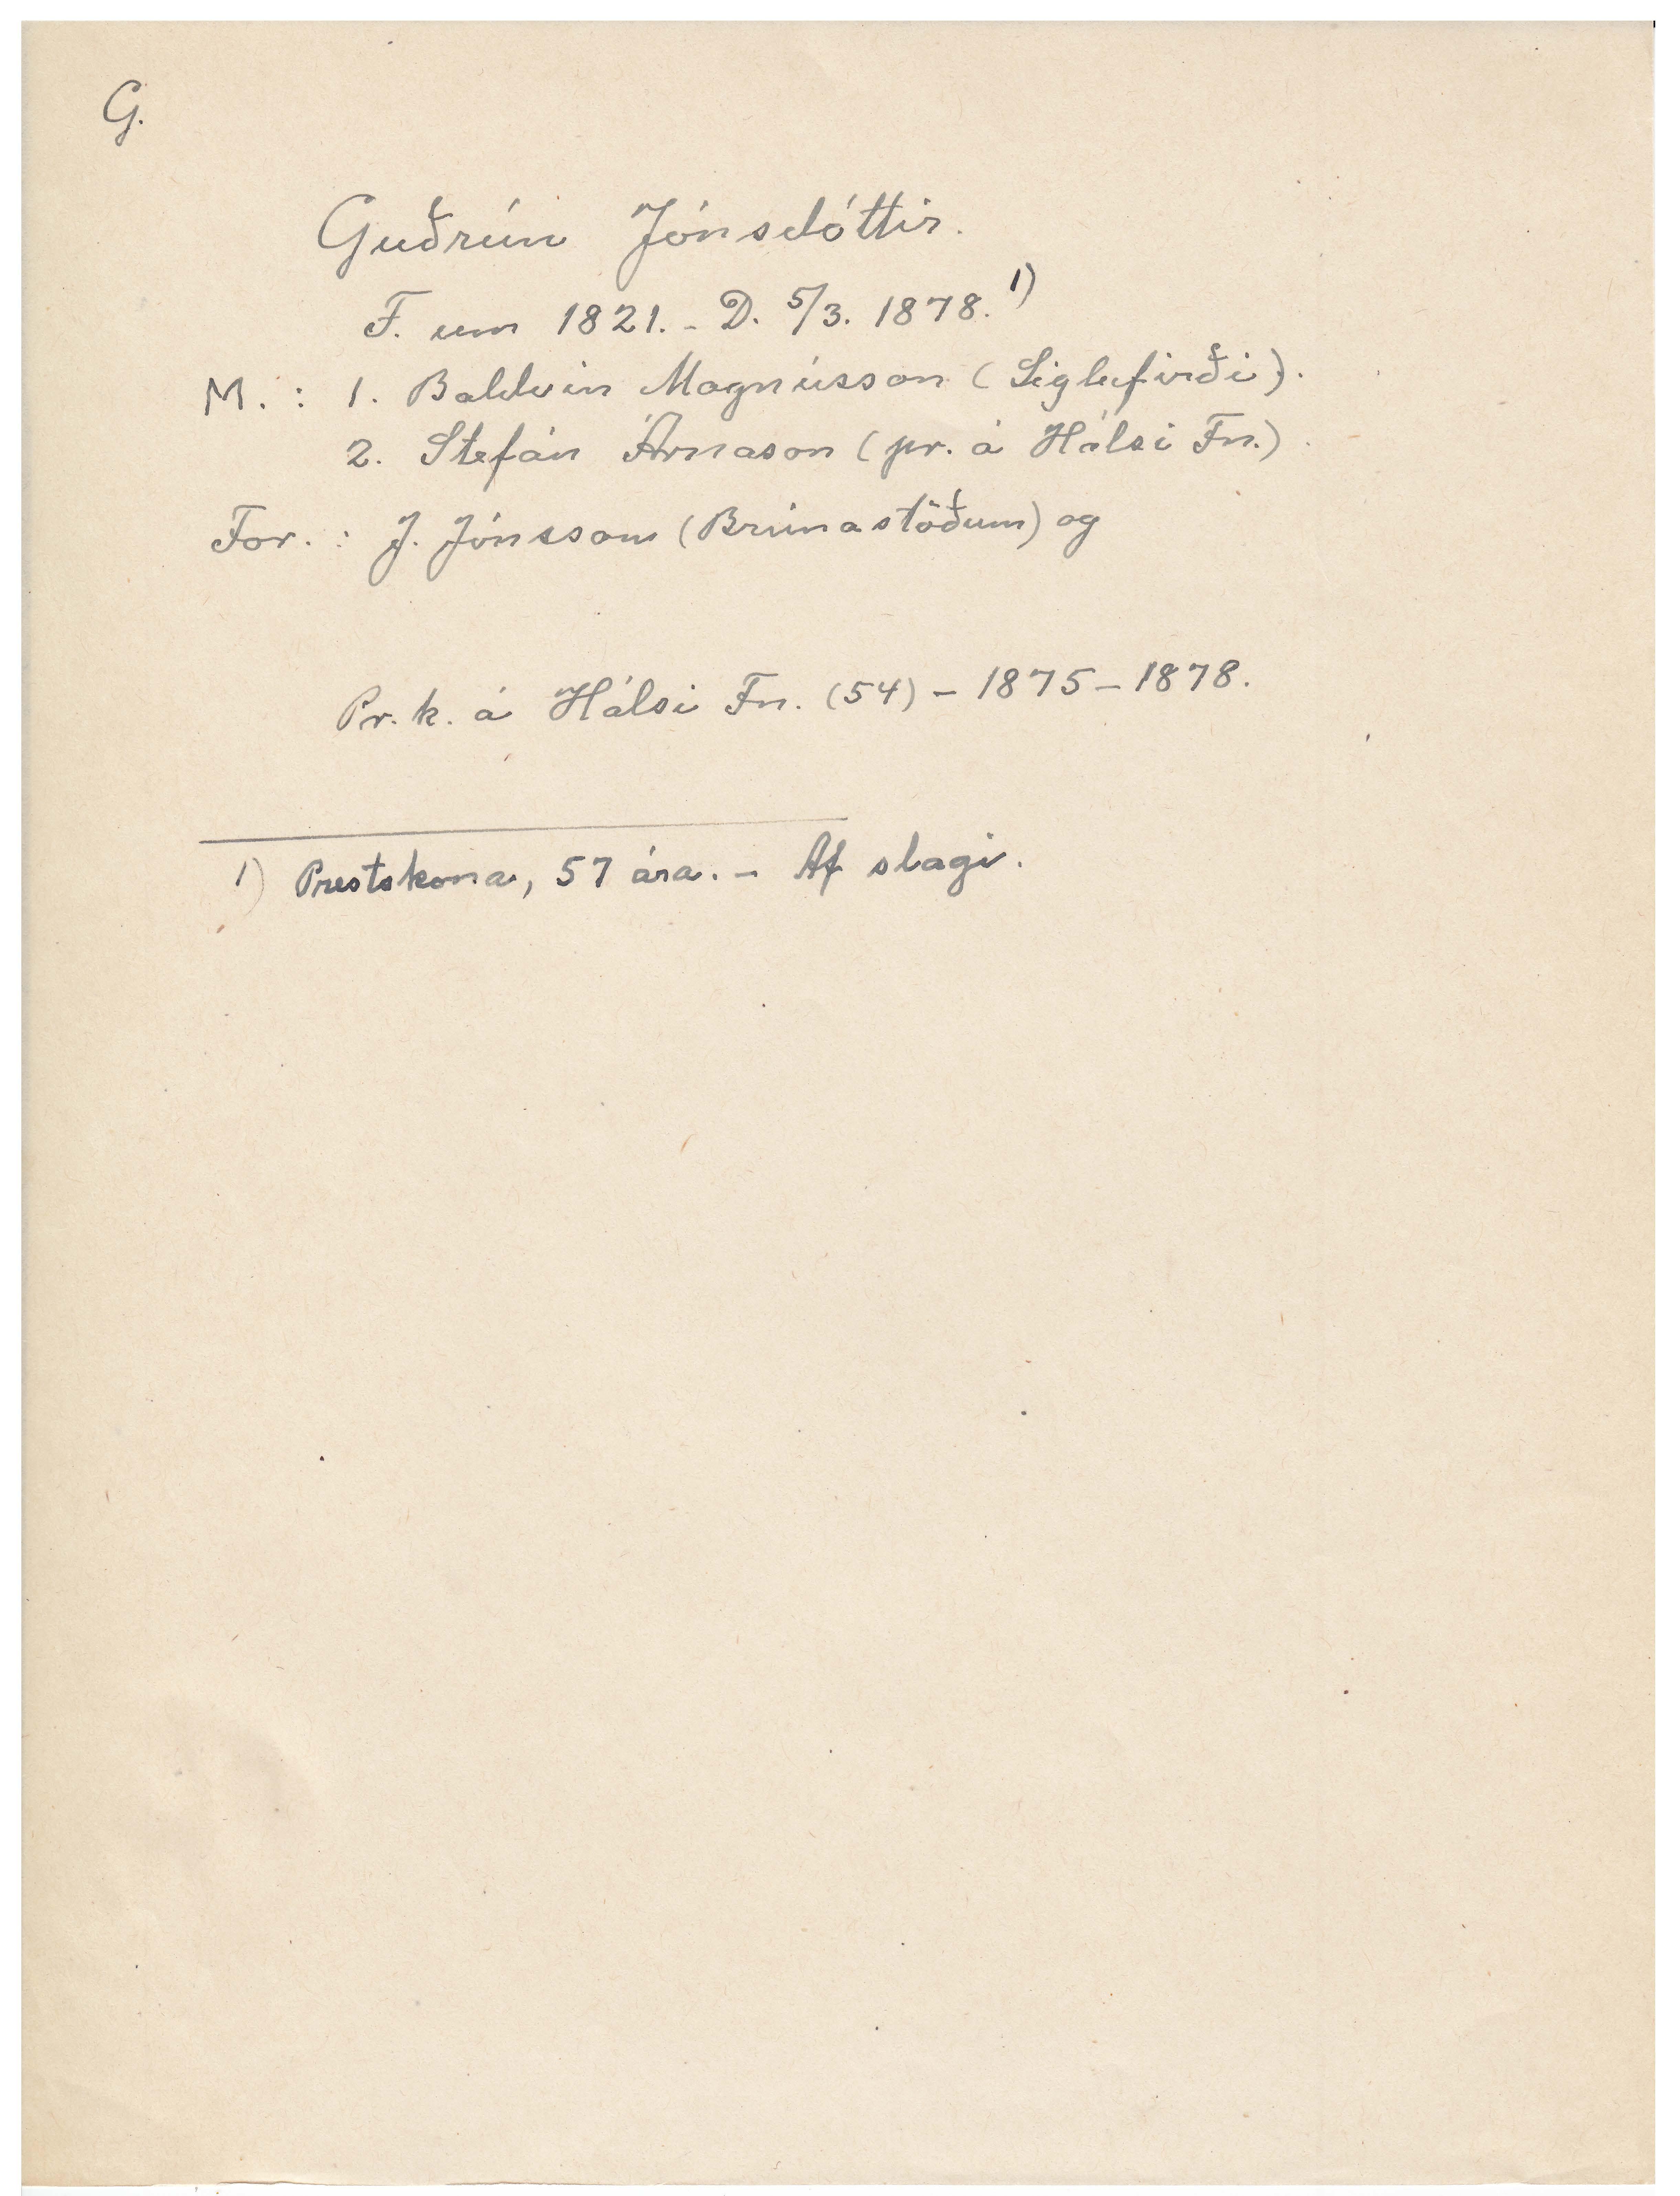 G.
Guðrún Jónsdóttir.
F. um 1821. - D. 5/3. 1878. 1)
M. : 1. Baldvin Magnússon (Siglufirði).
2. Stefán Árnason (pr. á Hálsi Fn.).
For. : J. Jónssom (Brúnastöðum) og
Pr. k. á Hálsi Fn. (54) - 1875 - 1878.
1) Prestskona, 57 ára. - Af slagi.